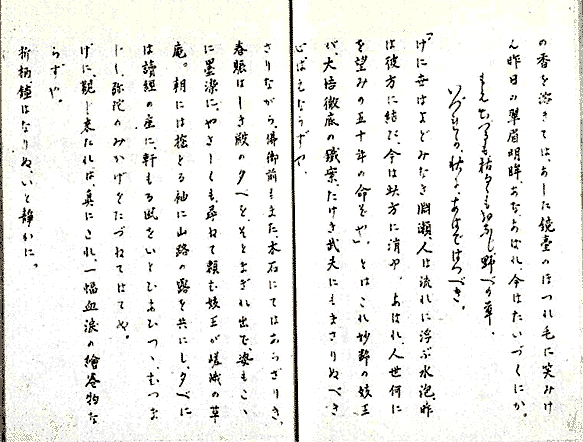 の香を溶きては、あした鏡臺のほつれ毛に笑みけ
ん昨日の翠眉明眸、あな、あはれ、今はたいづくにか。
もえ出づるも枯るゝも同じ野べの草、
いづれか秋にあはではつべき。
「げに世はよどみなき淵瀬、人は流れに浮ぶ水泡、昨
は彼方に結び、今は此方に消ゆ、あはれ、人世何に
を望みの五十年の命をや」とはこれ妙齢の妓王
が大悟徹底の鐵案、たけき武夫にもまさりぬべき
心ばえならずや。
さりながら、佛御前もまた木石にてはあらざりき。
春賑はしき殿の夕べを、そとまぎれ出で、姿もこゝ
に墨染に、やさしくも尋ねて頼む妓王が嵯峨の草
庵。朝には捻とる袖に山路の露を共にし、夕べに
は讀經の座に、軒もる風をいとひあひつゝ、むつま
じし、弥陀のみかげをたづねてはてや。
げに、觀じ来たれば、眞にこれ、一幅血涙の繪巻物な
らずや。
折柄鐘はなりぬ、いと静かに。